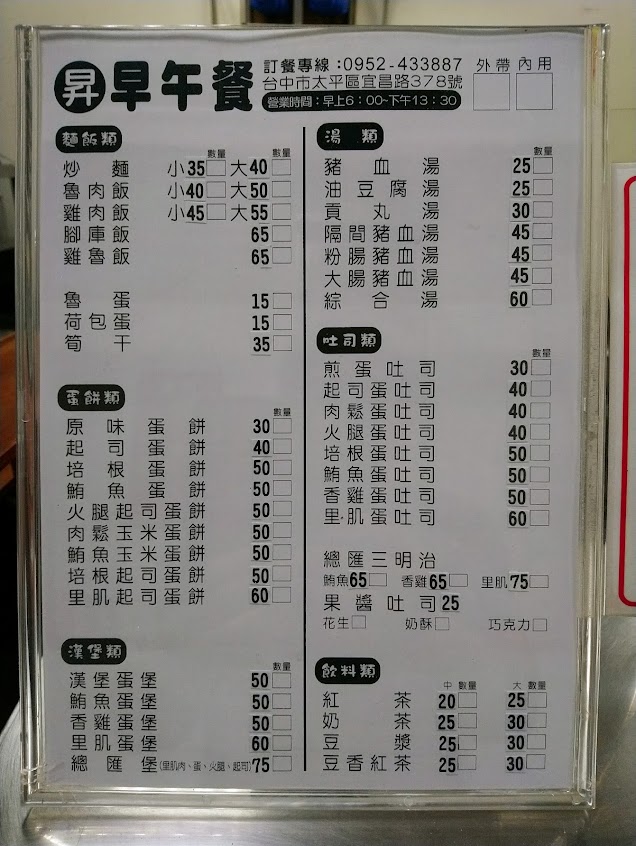 昇 早午餐
訂餐專線:0952-433887
台中市太平區宜昌路378號
營業時間:早上6:00~下午13:30
外帶 內用
麵飯類
數量 數量
炒麵 小35 大40
魯肉飯 小40 大50
雞肉飯 小45 大55
腳庫飯 65
雞魯飯 65
魯蛋 15
荷包蛋 15
筍干 35
蛋餅類
數量
原味蛋餅 30
起司蛋餅 40
培根蛋餅 50
鮪魚蛋餅 50
火腿起司蛋餅 50
肉鬆玉米蛋餅 50
鮪魚玉米蛋餅 50
培根起司蛋餅 50
里肌起司蛋餅 60
漢堡類
數量
漢堡蛋堡 50
鮪魚蛋堡 50
香雞蛋堡 50
里肌蛋堡 60
總匯堡(里肌肉、蛋、火腿、起司) 75
湯類
數量
豬血湯 25
油豆腐湯 25
貢丸湯 30
隔間豬血湯 45
粉腸豬血湯 45
大腸豬血湯 45
綜合湯 60
吐司類
數量
煎蛋吐司 30
起司蛋吐司 40
肉鬆蛋吐司 40
火腿蛋吐司 40
培根蛋吐司 50
鮪魚蛋吐司 50
香雞蛋吐司 50
里肌蛋吐司 60
總匯三明治
鮪魚65 香雞65 里肌75
果醬吐司25
花生 奶酥 巧克力
飲料類
中 數量 大 數量
紅茶 20 25
奶茶 25 30
豆漿 25 30
豆香紅茶 25 30